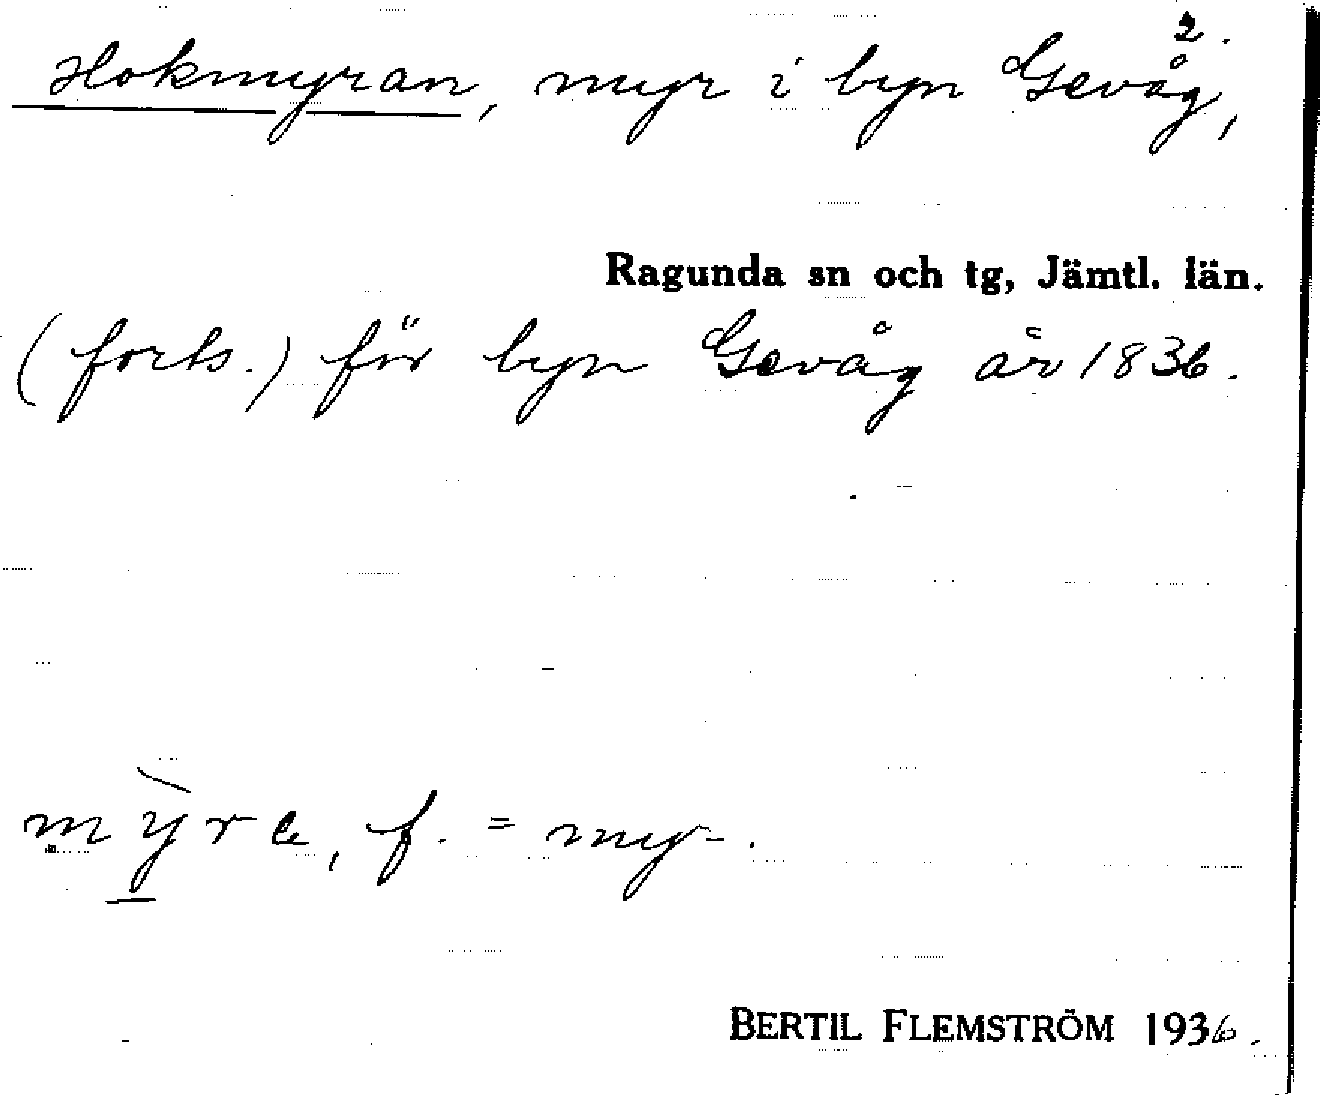 2.
Hokmyran, myr i byn Gevåg,
Ragunda sn och tg, Jämtl. län.
(forts.) för byn Gevåg år 1836.
mỳra, f. = myr.
BERTIL FLEMSTRÖM 1936.